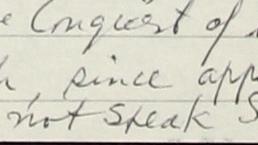 Conquest of
, since app
not speak S